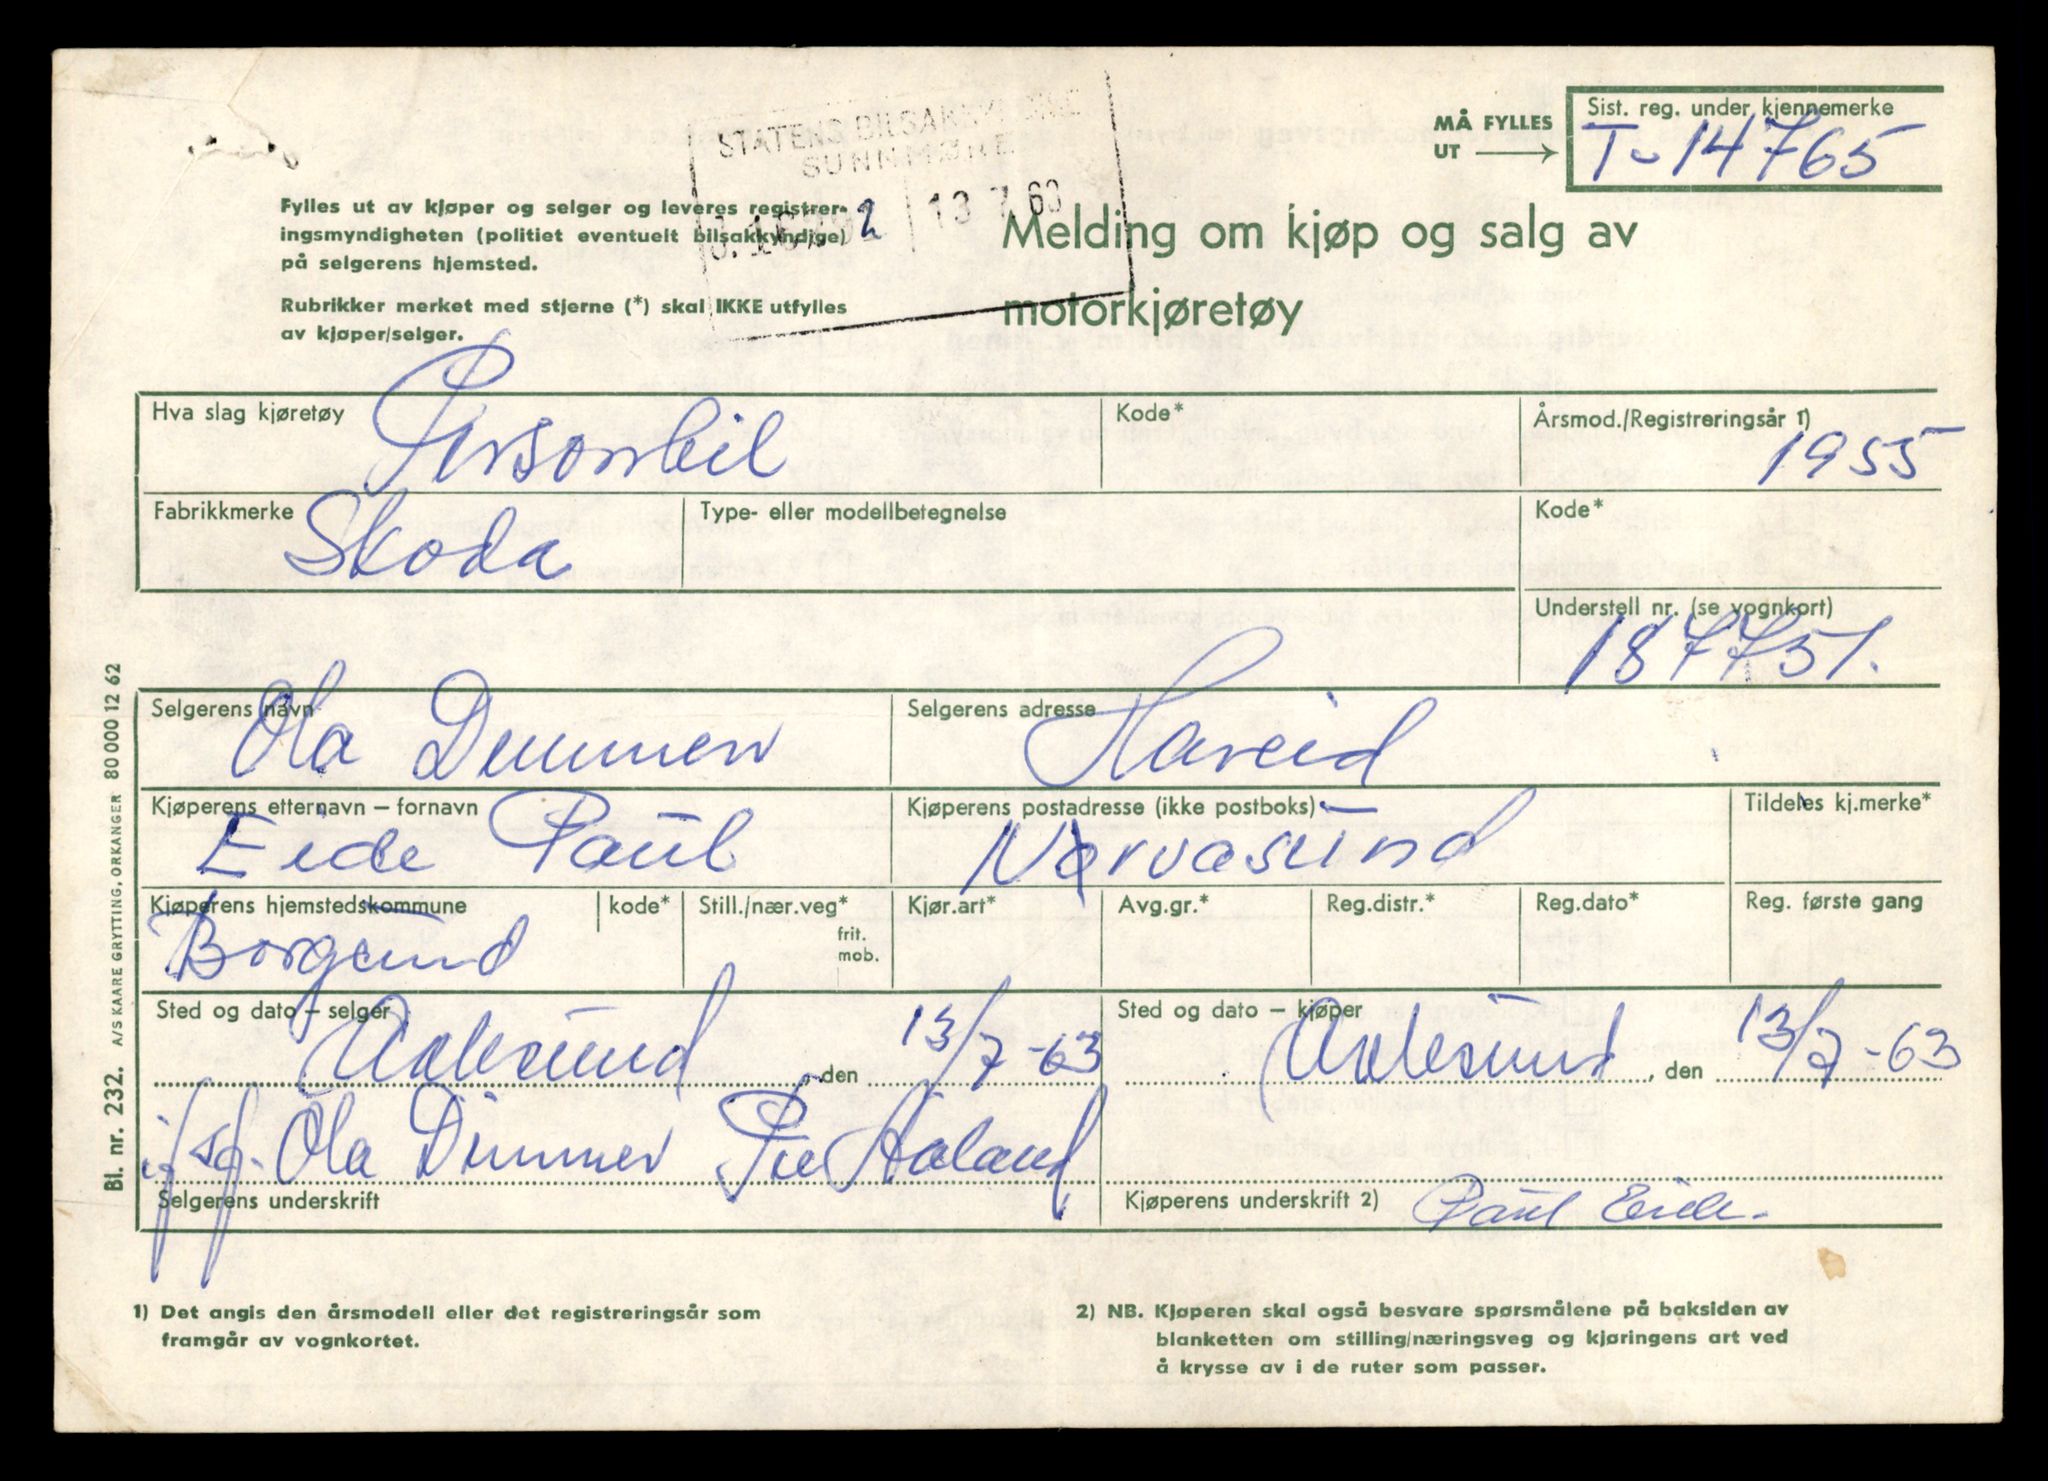 STATENS BILSAKKYNDIGE
SUNNMØRE
13 7 63
MÅ FYLLES
UT
Sist. reg. under kjennemerke
T-14765
Fylles ut av kjøper og selger og leveres registrer-
ingsmyndigheten (politiet eventuelt bilsakkyndige)
på selgerens hjemsted.
Rubrikker merket med stjerne (*) skal IKKE utfylles
av kjøper/selger.
Melding om kjøp og salg av
motorkjøretøy
Hva slag kjøretøy Personbil Kode* Årsmod./Registreringsår 1) 1955
Fabrikkmerke Skoda Type- eller modellbetegnelse Kode*
Understell nr. (se vognkort)
187751.
Selgerens navn Ola Dimmen Selgerens adresse Hareid
Kjøperens etternavn – fornavn Kjøperens postadresse (ikke postboks) Tildeles kj.merke*
Eide Paul Norvasund
Kjøperens hjemstedskommune kode* Still./nær.veg* Kjør.art* Avg.gr.* Reg.distr.* Reg.dato* Reg. første gang
frit.
mob.
Borgund
Sted og dato – selger Sted og dato – kjøper
Aalesund, den 13/7-63 Aalesund, den 13/7-63
Ola Dimmen Aaland
Selgerens underskrift Kjøperens underskrift 2) Paul Eide.
1) Det angis den årsmodell eller det registreringsår som
framgår av vognkortet.
2) NB. Kjøperen skal også besvare spørsmålene på baksiden av
blanketten om stilling/næringsveg og kjøringens art ved
å krysse av i de ruter som passer.
Bl. nr. 232. A/S KAARE GRYTTING, ORKANGER 80 000 12 62